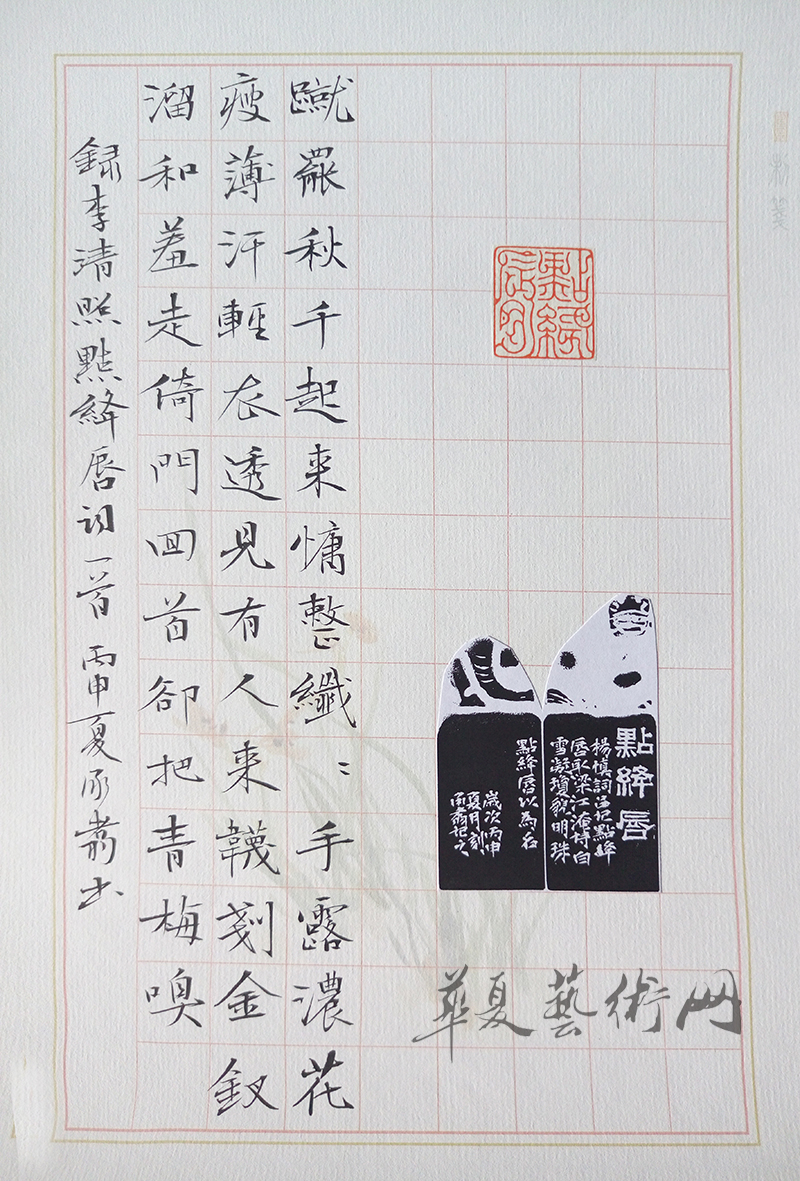 點絳唇
點絳唇
楊慎詞品記點絳
唇取梁江淹詩白
雪凝瓊貌明珠
點絳唇以為名
歲次丙申
夏月刻
記之
蹴罷秋千起來慵整纖〻手露濃花
瘦薄汗輕衣透見有人來韈剗金釵
溜和羞走倚門回首卻把青梅嗅
録李清照點絳唇詞一首 丙申夏承翥书
華夏藝術网